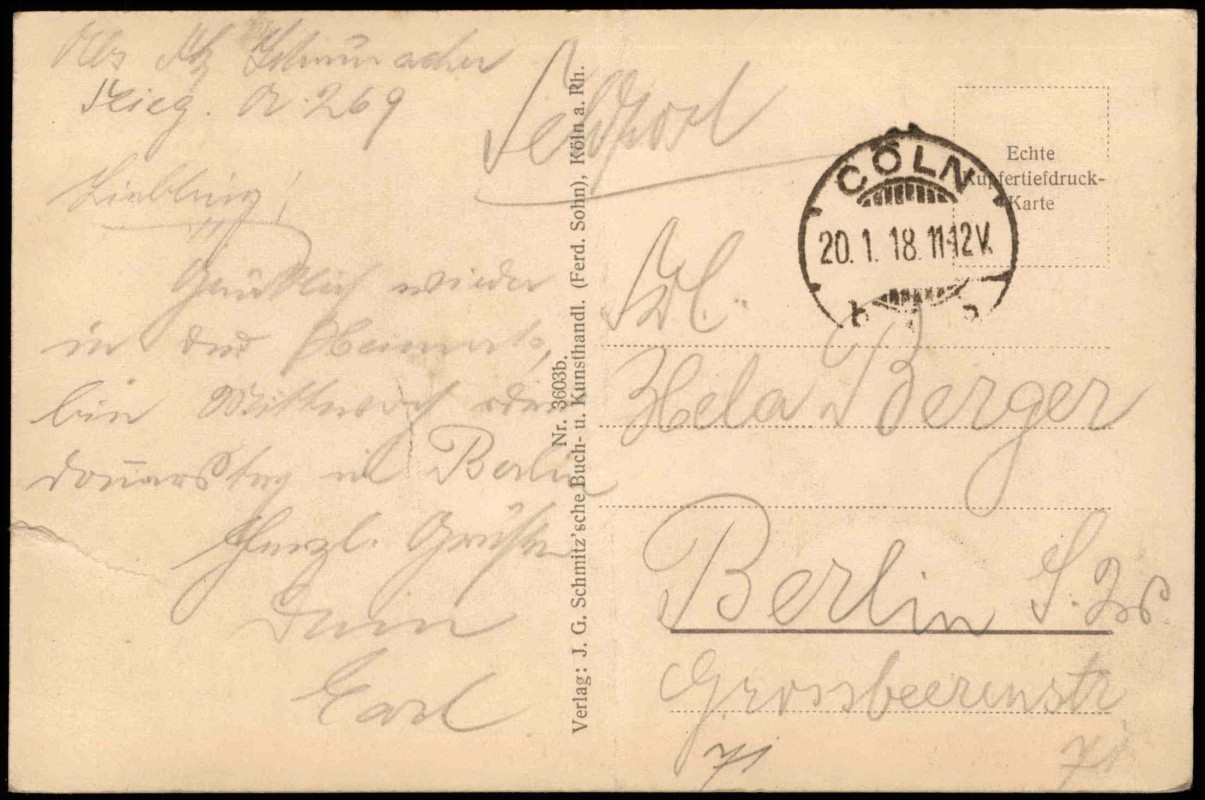 Abs Schumacher
Krieg. A. 269
Liebling!
Glücklich wieder
in der Heimat,
bin Mittwoch oder
Donnerstag in Berlin
Herzl. Grüße
Dein
Carl
Nr. 3603b.
Verlag: J. G. Schmitz'sche Buch- u. Kunsthandl. (Ferd. Sohn), Köln a. Rh.
Feldpost
Echte
Kupfertiefdruck-
Karte
CÖLN
20. 1. 18. 11-12V.
Frl.
Hela Berger
Berlin S.W.
Grossbeerenstr
71 71